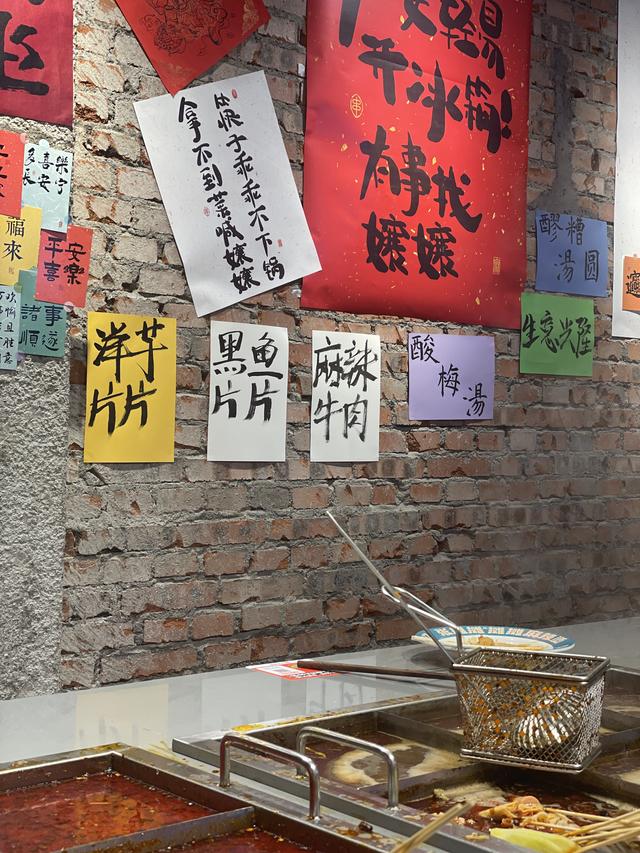 筷子乖乖不下锅
拿不到菜喊嬢嬢
輕易
开冰箱!
有事找
嬢嬢
多喜樂
長安宁
福
來
平安
喜樂
諸事
順遂
洋芋
片片
黑鱼
片片
麻辣
牛肉
酸
梅
湯
醪糟
湯圆
生意兴隆